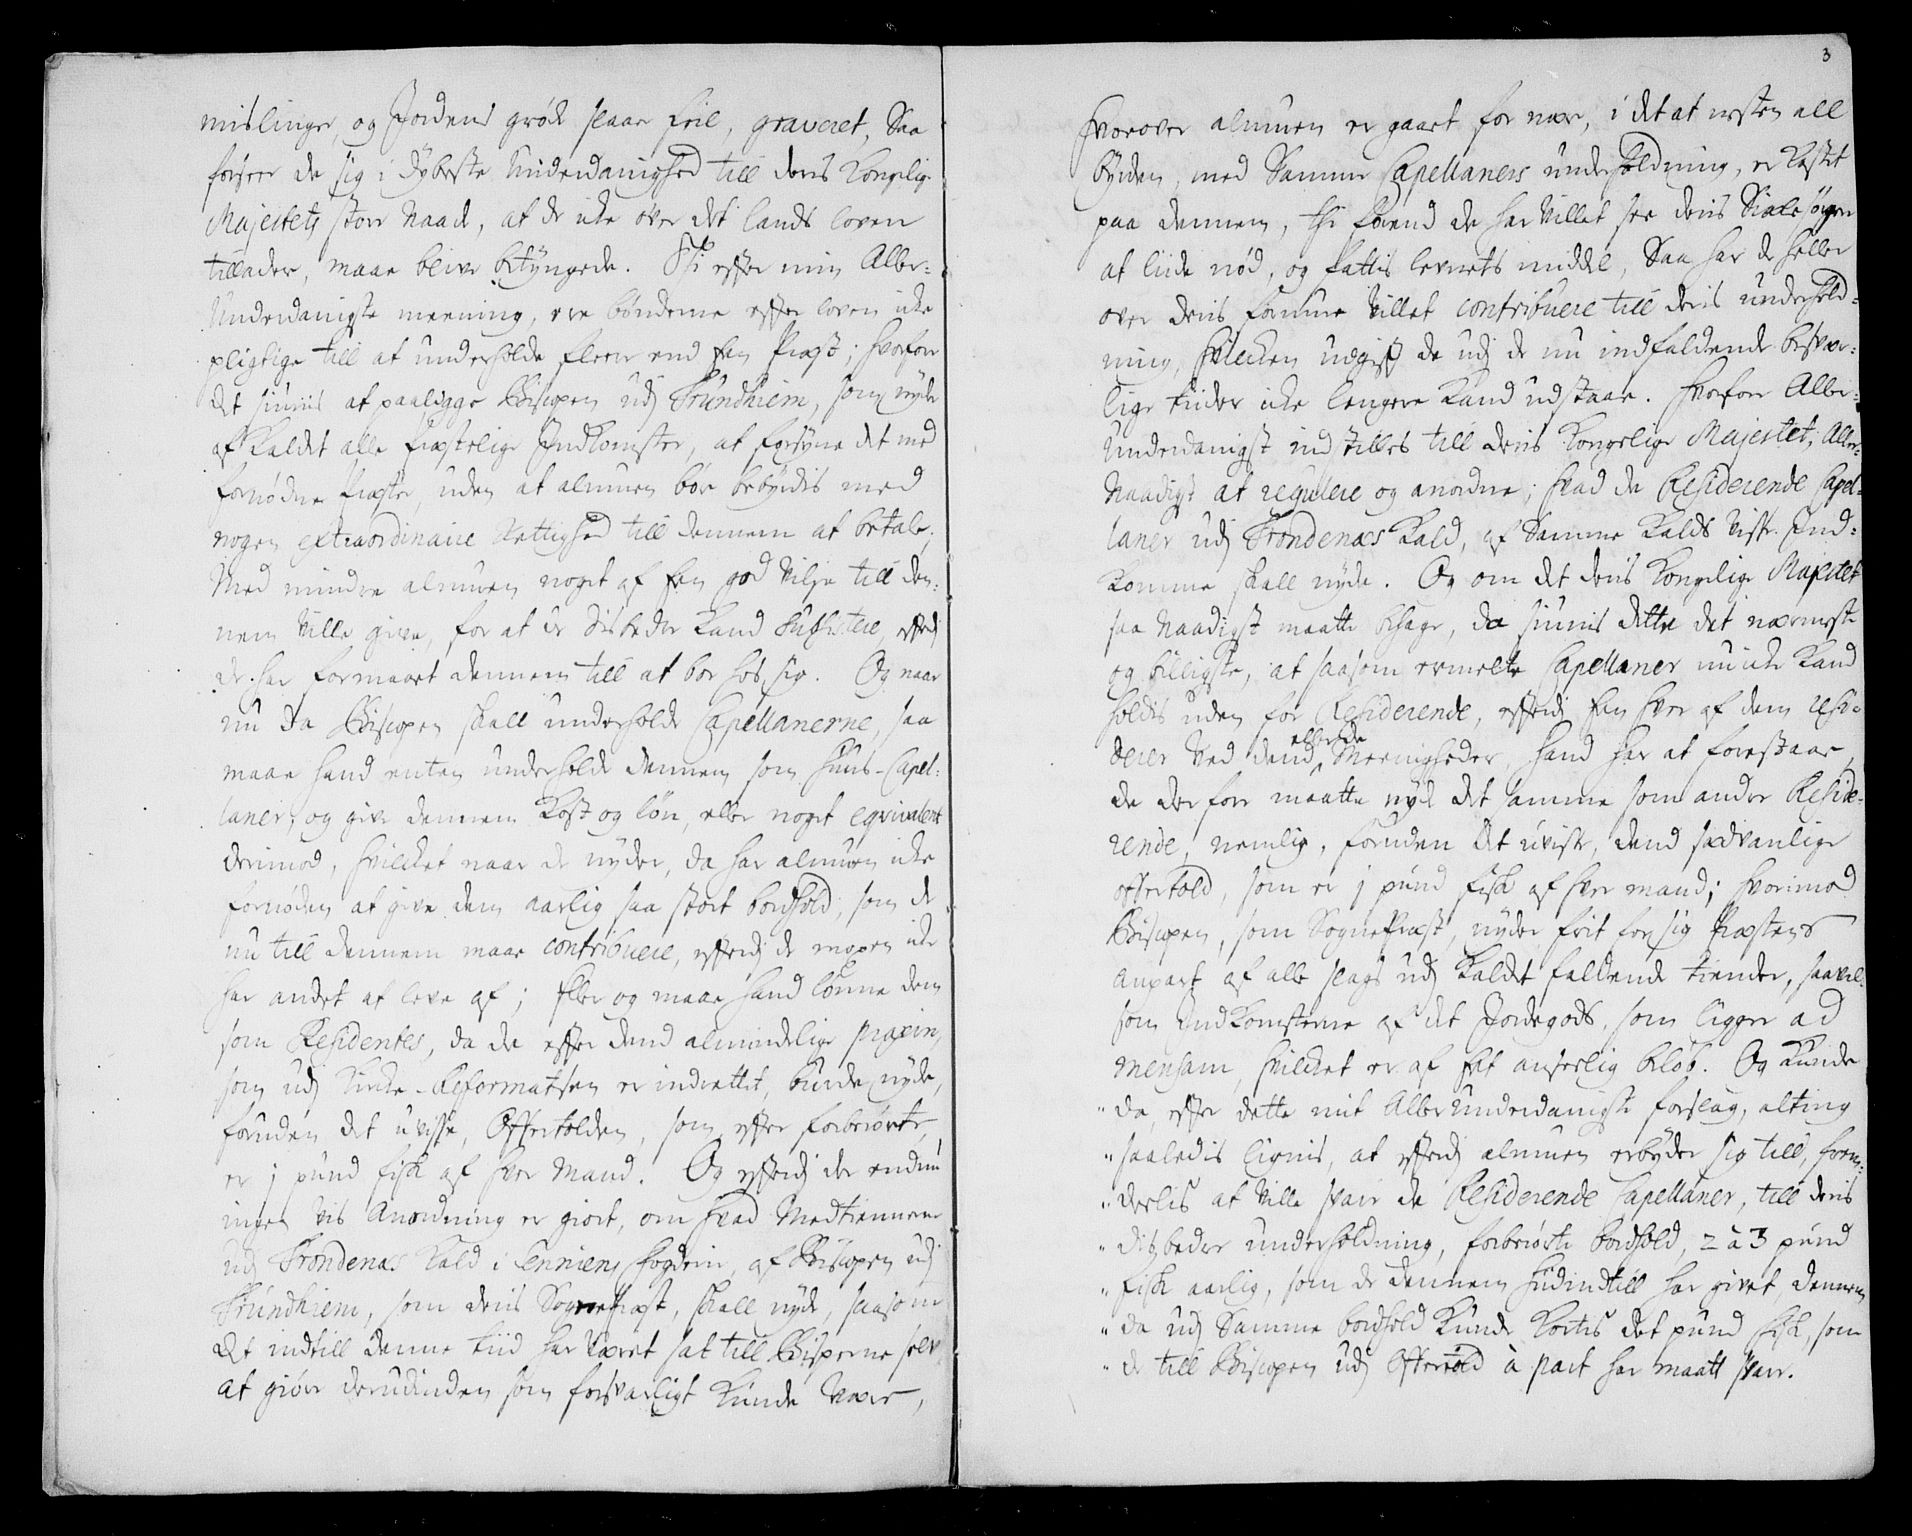 mislinger, og Jordens grøde slaar feil, graveret, Saa
forseer de sig i dybeste Underdanighed till deris Kongelig
Majestets store Naade, at de icke over det lands loven
tillader, maae blive betyngede. Thi effter min Aller-
Underdanigste meening, ere bønderne effter loven icke
pligtige till at underholde fleere end Een Præst; hvorfore
det siunis at paaligge Biscopen udj Trundhiem, som nyde
af Kaldet alle Præstelige Indkomster, at forsyne det med
fornødne Præster, uden at almuen bør bebyrdis med
nogen extraordinaire Rettighed till dennem at betale,
Med mindre almuen noget af Een god Vilje till den-
nem Ville give, for at de disbedre Kand subsistere, effterdj
de har formaaet dennem till at boe hos sig. Og naar
nu da Biscopen skall underholde Capellanerne, saa
maae hand enten underholde dennem som Huus-Capel-
laner, og give dennem Kost og løn, eller noget eqvivalent
derimod, hvilcket naar de nyder, da har almuen icke
fornøden at give dem aarlig saa stort bordhold, som de
nu till dennem maae contribuere, effterdj de mesten icke
har andet at leve af; Eller og maae hand lønne dem
som Residentes, da de effter dend almindelige praxin,
som udj Kircke-Reformatsen er indrettet, burde nyde,
foruden det uvisse, Offertolden, som effter forberiørte,
er j pund fisk af hver Mand. Og effterdj der endnu
ingen vis Anordning er giort, om hvad Medtiennere
udj Trondenæs Kald i Senniens fogderie, af Biscopen udj
Trundhiem, som deris SognePræst, skall nyde, saasom
det indtill denne tiid har Været sat till Bisperne selv
at giøre derudinden som forsvarligt Kunde Være,
3
hvorover almuen er gaaet for nær, i det at mesten all
byrden, med Samme Capellaners underholdning, er Kastet
paa dennem, thi førend de har Villet see deris Siælesørgere
at liide nød, og fattis levnets middel, Saa har de heller
over deris formue Villet contribuere till deris underhold-
ning, hvilcken udgift de udj de nu indfaldende besvær-
lige tiider icke lengere Kand udstaae. Hvorfore Aller-
Underdanigst indstilles till deris Kongelige Majestet, Aller-
Naadigst at regulere og anordne, hvad de Residerende Capel-
laner udj Trondenæs Kald, af Samme Kalds visse Ind-
komme skall nyde. Og om det deris Kongelige Majestet
saa Naadigst maatte behage, da siunis dette det nærmeste
og billigste, at saasom ermelte Capellaner nu icke Kand
holdis uden for Residerende, effterdj Een hver af dem resi-
derer Ved dend eller de Meenigheder, hand har at forestaae,
de derfore maatte nyde det samme som andre Reside-
rende, nemlig, foruden det uviste, dend sædvanlige
offertold, som er j pund fisk af hver mand; hvorimod
Biscopen, som SognePræst, nyder frit for sig Præstens
anpart af alle slags udj Kaldet faldende tiender, saavel
som Indkomsterne af det Jordegods, som ligger ad
mensam, hvilcket er af Eet anseelig beløb. Og Kunde
" da, effter dette mit AllerUnderdanigste forslag, alting
" saaledis lignis, at effterdj almuen erbyder sig till, frem-
" deelis at ville svare de Residerende Capellaner, till deris
" disbedre underholdning, forberiørte bordhold, 2 à 3 pund
" fisk aarlig, som de dennem hidindtill har givet, dennem
" da udj Samme bordhold Kunde Kortis det pund fisk, som
" de till Biscopen udj Offertold à part har maatt svare.